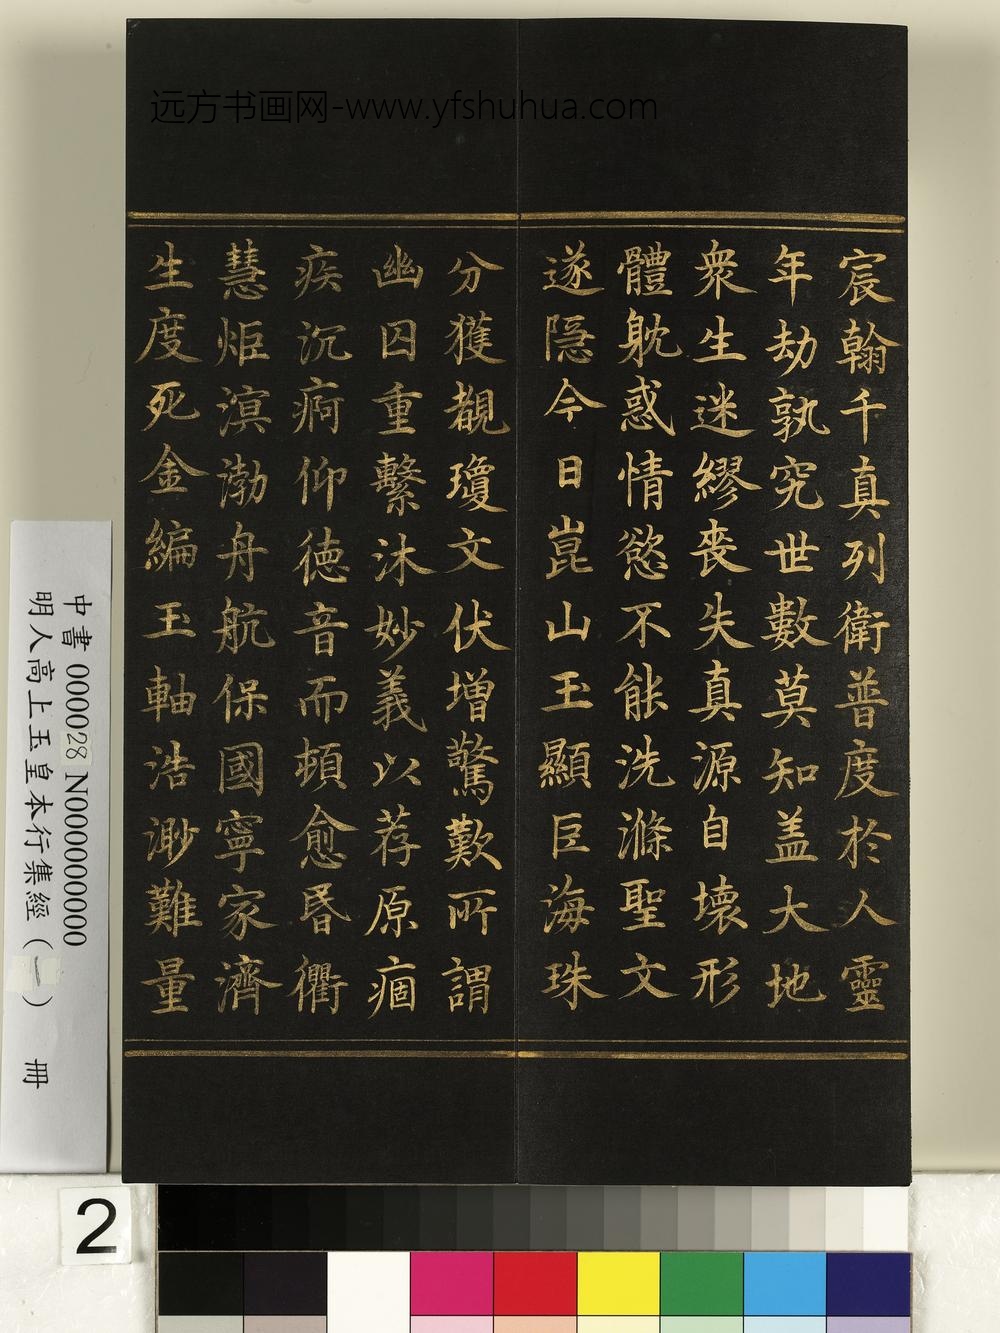 远方书画网-www.yfshuhua.com
宸翰千真列衛普度於人靈
年劫孰究世數莫知盖大地
衆生迷繆丧失真源自壊形
體躭惑情慾不能洗滌聖文
遂隠今日崑山玉顯巨海珠
分獲覩瓊文伏增驚歎所謂
幽囚重繫沐妙義以荐原痼
疾沉痾仰徳音而頓愈昬衢
慧炬溟渤舟航保國寧家濟
生度死金編玉軸浩渺難量
中書 000028 N000000000
明人高上玉皇本行集經（一） 冊
2